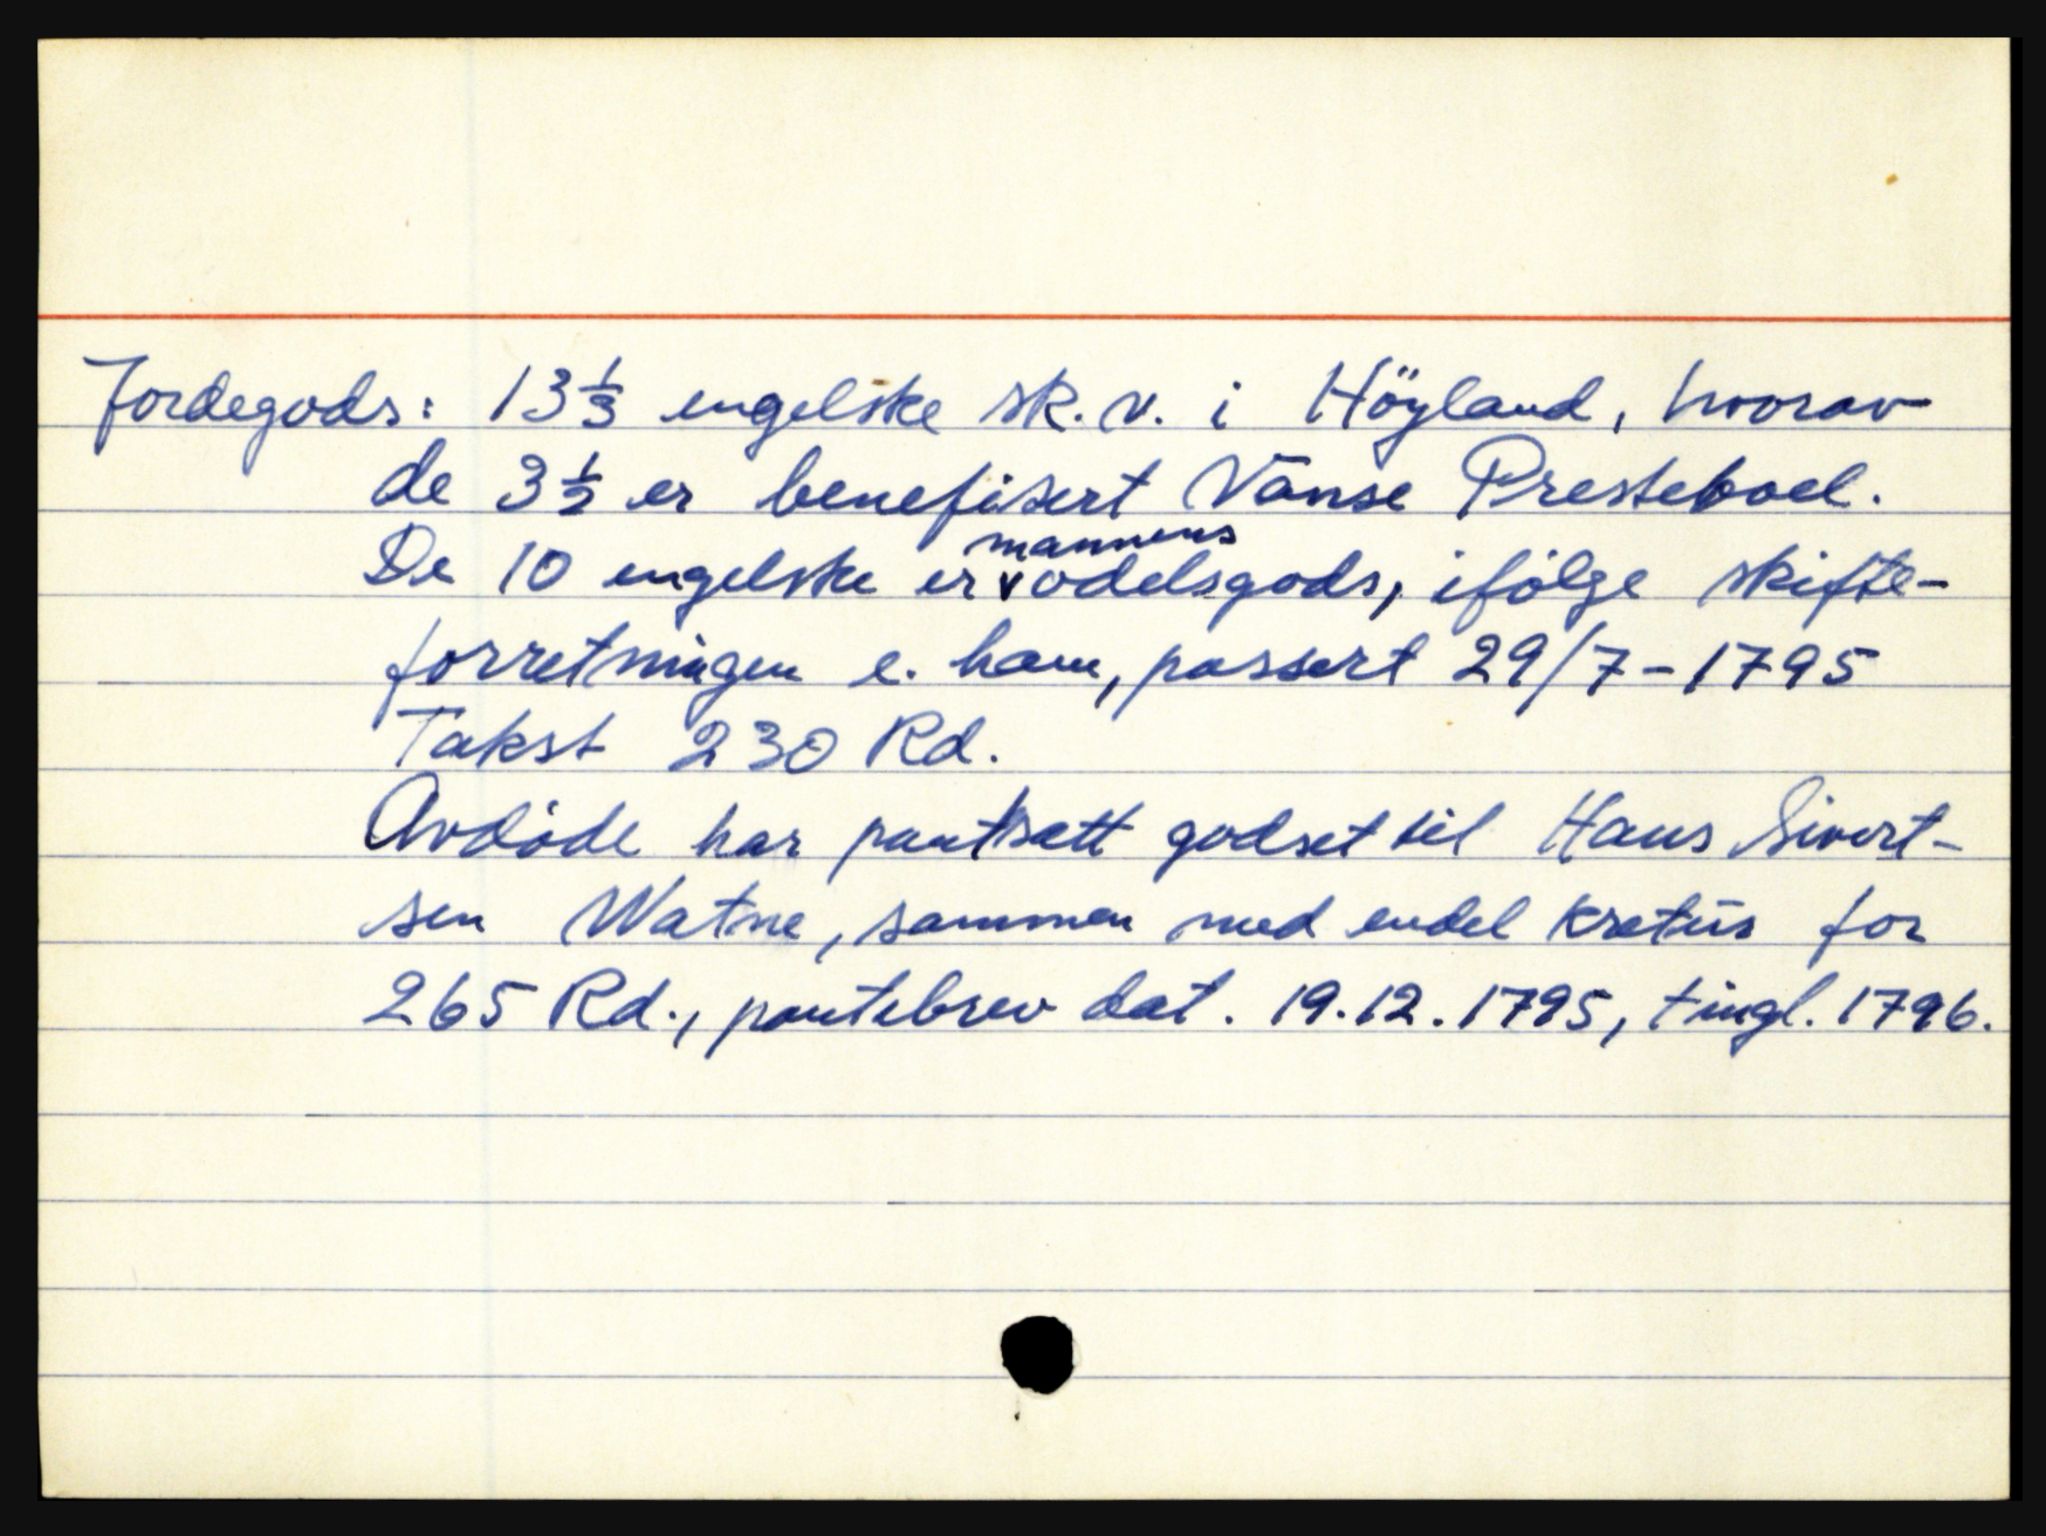 Jordegods: 13 1/3 engelske sk. v. i Höyland, hvorav
de 3 1/3 er benefisert Vanse Presteboel.
De 10 engelske er mannens odelsgods, ifölge skifte-
forretningen e. ham, passert 29/7-1795
Takst 230 Rd.
Avdöde har pantsatt godset til Hans Sivert-
sen Watne, sammen med endel kretür for
265 Rd., pantebrev dat. 19.12.1795, tingl. 1796.